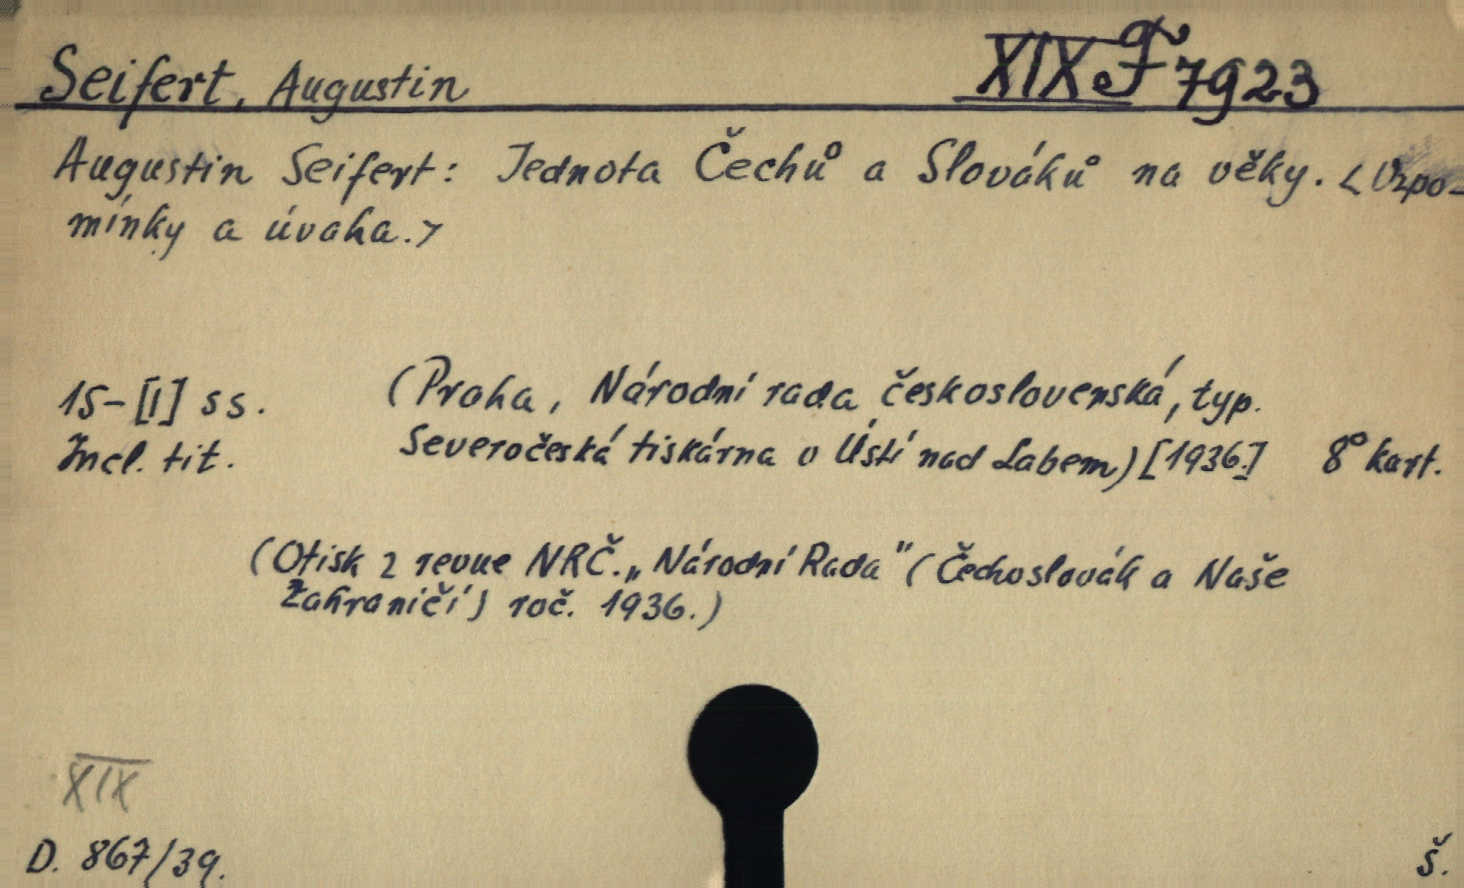 Seifert, Augustin XIX F 7923
Augustin Seifert: Jednota Čechů a Slováků na věky. <Vzpo-
mínky a úvaha.>
15-[1] ss. (Praha, Národní rada československá, typ.
Incl. tit. Severočeská tiskárna v Ústí nad Labem) [1936.] 8° kart.
(Otisk z revue NRČ. „Národní Rada" (Čechoslovák a Naše
Zahraničí) roč. 1936.)
XIX
D. 867/39. Š.